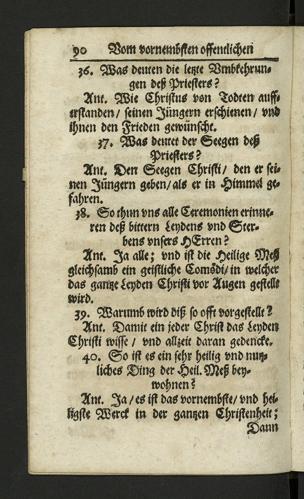 90 Vom vornembsten offentlichen
36. Was deuten die letzte Vmbkehrun-
gen deß Priesters?
Ant. Wie Christus von Todten auff-
erstanden / seinen Jüngern erschienen / vnd
ihnen den Frieden gewünscht.
37. Was deutet der Seegen deß
Priesters?
Ant. Den Seegen Christi / den er sei-
nen Jüngern geben / als er in Himmel ge-
fahren.
38. So thun vns alle Ceremonien erinne-
ren deß bittern Leydens vnd Ster-
bens vnsers HErren?
Ant. Ja alle; vnd ist die Heilige Meß
gleichsamb ein geistliche Comœdi / in welcher
das gantze Leyden Christi vor Augen gestellt
wird.
39. Warumb wird diß so offt vorgestellt?
Ant. Damit ein jeder Christ das Leyden
Christi wisse / vnd allzeit daran gedencke.
40. So ist es ein sehr heilig vnd nutz-
liches Ding der Heil. Meß bey-
wohnen?
Ant. Ja / es ist das vornembste / vnd hei-
ligste Werck in der gantzen Christenheit;
Dann